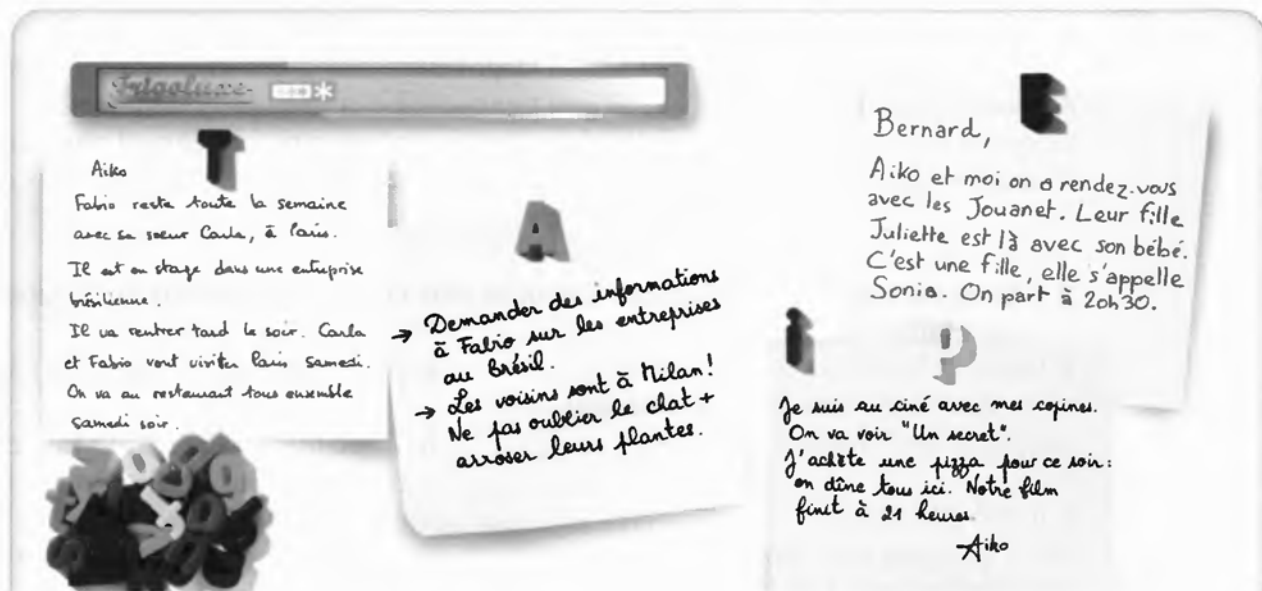 Frigoluxe
T
Aiko
Fabio reste toute la semaine
avec sa soeur Carla, à Paris.
Il est en stage dans une entreprise
brésilienne.
Il va rentrer tard le soir. Carla
et Fabio vont visiter Paris samedi.
On va au restaurant tous ensemble
samedi soir.
A
→ Demander des informations
à Fabio sur les entreprises
au Brésil.
→ Les voisins sont à Milan!
Ne pas oublier le chat +
arroser leurs plantes.
E
Bernard,
Aiko et moi on a rendez-vous
avec les Jouanet. Leur fille
Juliette est là avec son bébé.
C'est une fille, elle s'appelle
Sonia. On part à 20h30.
i P
Je suis au ciné avec mes copines.
On va voir "Un secret".
J'achète une pizza pour ce soir:
on dîne tous ici. Notre film
finit à 21 heures.
Aiko